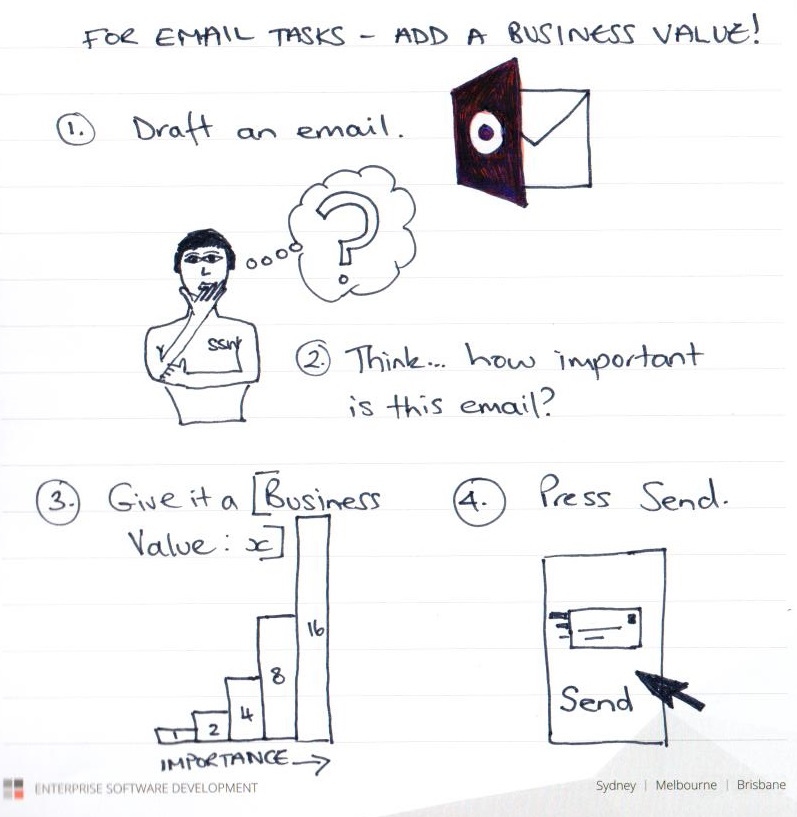 FOR EMAIL TASKS - ADD A BUSINESS VALUE!
1. Draft an email.
?
SSW
2. Think... how important
is this email?
3. Give it a [Business
Value : x]
1 2 4 8 16
IMPORTANCE →
4. Press Send.
Send
ENTERPRISE SOFTWARE DEVELOPMENT
Sydney | Melbourne | Brisbane